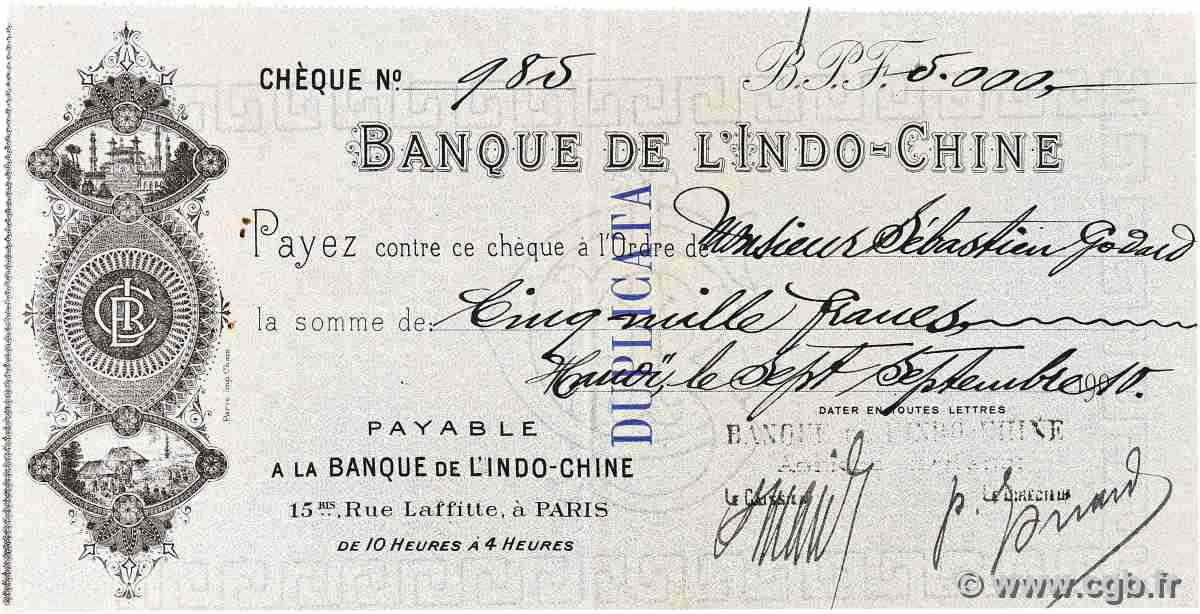 CHÈQUE Nº 985 B.P.F. 5.000,
BANQUE DE L'INDO-CHINE
Payez contre ce chèque à l'Ordre de Monsieur Sébastien Godard
la somme de: Cinq mille francs
Hanoï, le Sept Septembre 1910.
DATER EN TOUTES LETTRES
DUPLICATA
PAYABLE
A LA BANQUE DE L'INDO-CHINE
15BIS, Rue Laffitte, à PARIS
DE 10 HEURES À 4 HEURES
BANQUE INDO-CHINE
LE CAISSIER LE DIRECTEUR
p.
© www.cgb.fr